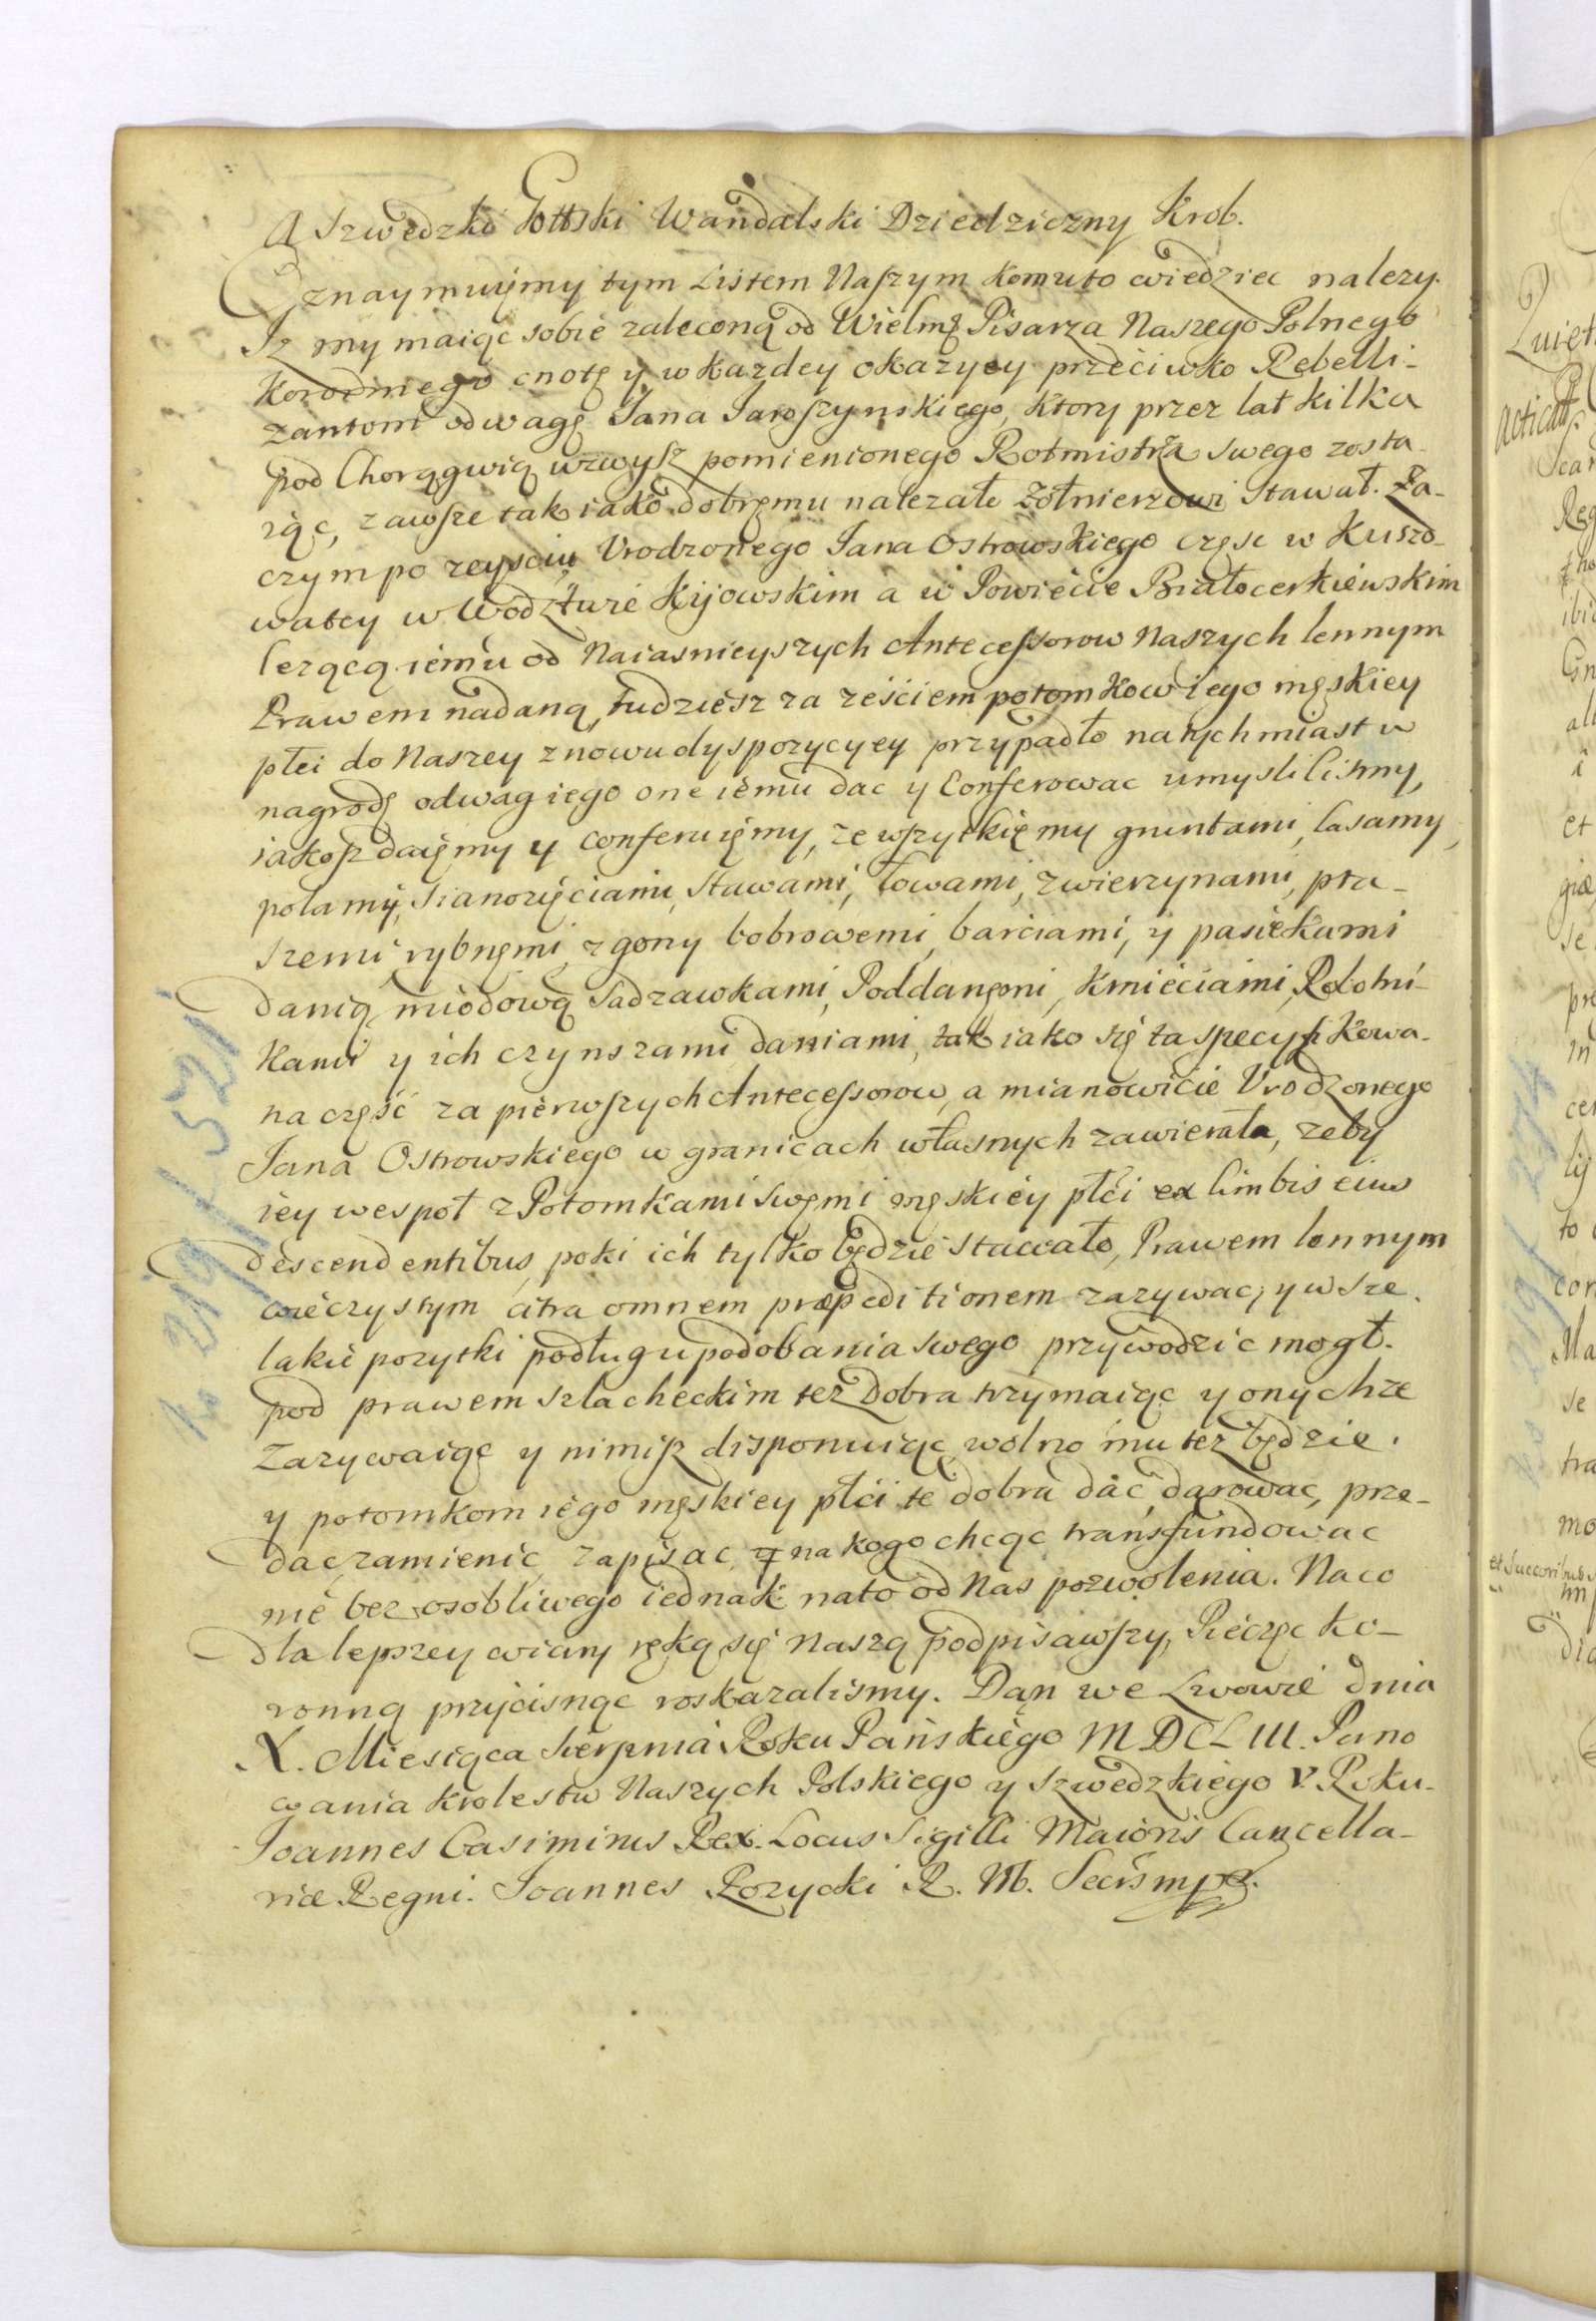 A Szwedzki Gottski Wandalski Dziedziczny Krol.
Oznaymuiemy tym Listem Naszym komuto wiedziec nalezy.
Jz my maiąc sobie zaleconą od Wielmo Pisarza Naszego Polnego
Koronnego cnotę y w kazdey okazyey przeciwko Rebelli-
zantom odwagę Jana Jaroszynskiego, ktory przez lat kilka
pod Chorągwią wzwysz pomienionego Rotmistrza swego zosta-
iąc, zawsze tak iako dobremu nalezało Zołnierzowi Stawał. Za-
czym po zeysciu Vrodzonego Jana Ostrowskiego częsc w Kuszo-
watey w Wodztwie Kijowskim a w Powiecie Białocerkiewskim
lezącą iemu od Naiasnieyszych Antecessorow Naszych lennym
Prawem nadaną, tudziesz za ześciem potomkow iego męskiey
płci do Naszey znowu dyspozycyey przypadło natychmiast w
nagrodę odwag iego one iemu dac y Conferowac umyslilismy,
iakosz daiemy y conferuiemy, ze wszytkiemy gruntami, lasamy,
polamy, Sianozęciami, Stawami, łowami, zwierzynami, pta-
szemi, rybnemi, zgony bobrowemi, barciami, y pasiekami
danią miodową Sadzawkami, Poddanemi, Kmieciami, Robotni-
kami y ich czynszami daniami, tak iako się ta specyfikowa-
na część za pierwszych Antecessorow, a mianowicie Vrodzonego
Jana Ostrowskiego w granicach własnych zawierała, zeby
iey wespoł z Potomkami swemi męskiey płci ex limbis eius
descendentibus, poki ich tylko będzie Stawało, Prawem lennym
wieczystym citra omnem præpeditionem zazywac, y wsze-
lakie pozytki podług upodobania swego przywodzic mogł.
pod prawem szlacheckim tez Dobra trzymaiąc y onychze
Zazywaiąc y nimisz disponuiąc wolno mu tez będzie.
y potomkom iego męskiey płci te dobra dać, darowac, prze-
dac, zamienic, zapisac, y na kogo chcąc transfundowac
nie bez osobliwego iednak nato od Nas pozwolenia. Naco
dla lepszey wiary ręką się Naszą podpisawszy, Pieczęc ko-
ronną przycisnąc roskazalismy. Dan we Lwowie dnia
X. Miesiąca Sierpnia Roku Pańskiego MDCLIII. Pano
wania krolestw Naszych Polskiego y Szwedzkiego V Roku.
Joannes Casimirus Rex. Locus Sigilli Maioris Cancella-
riæ Regni. Joannes Rozycki R. M. Secrs mp.